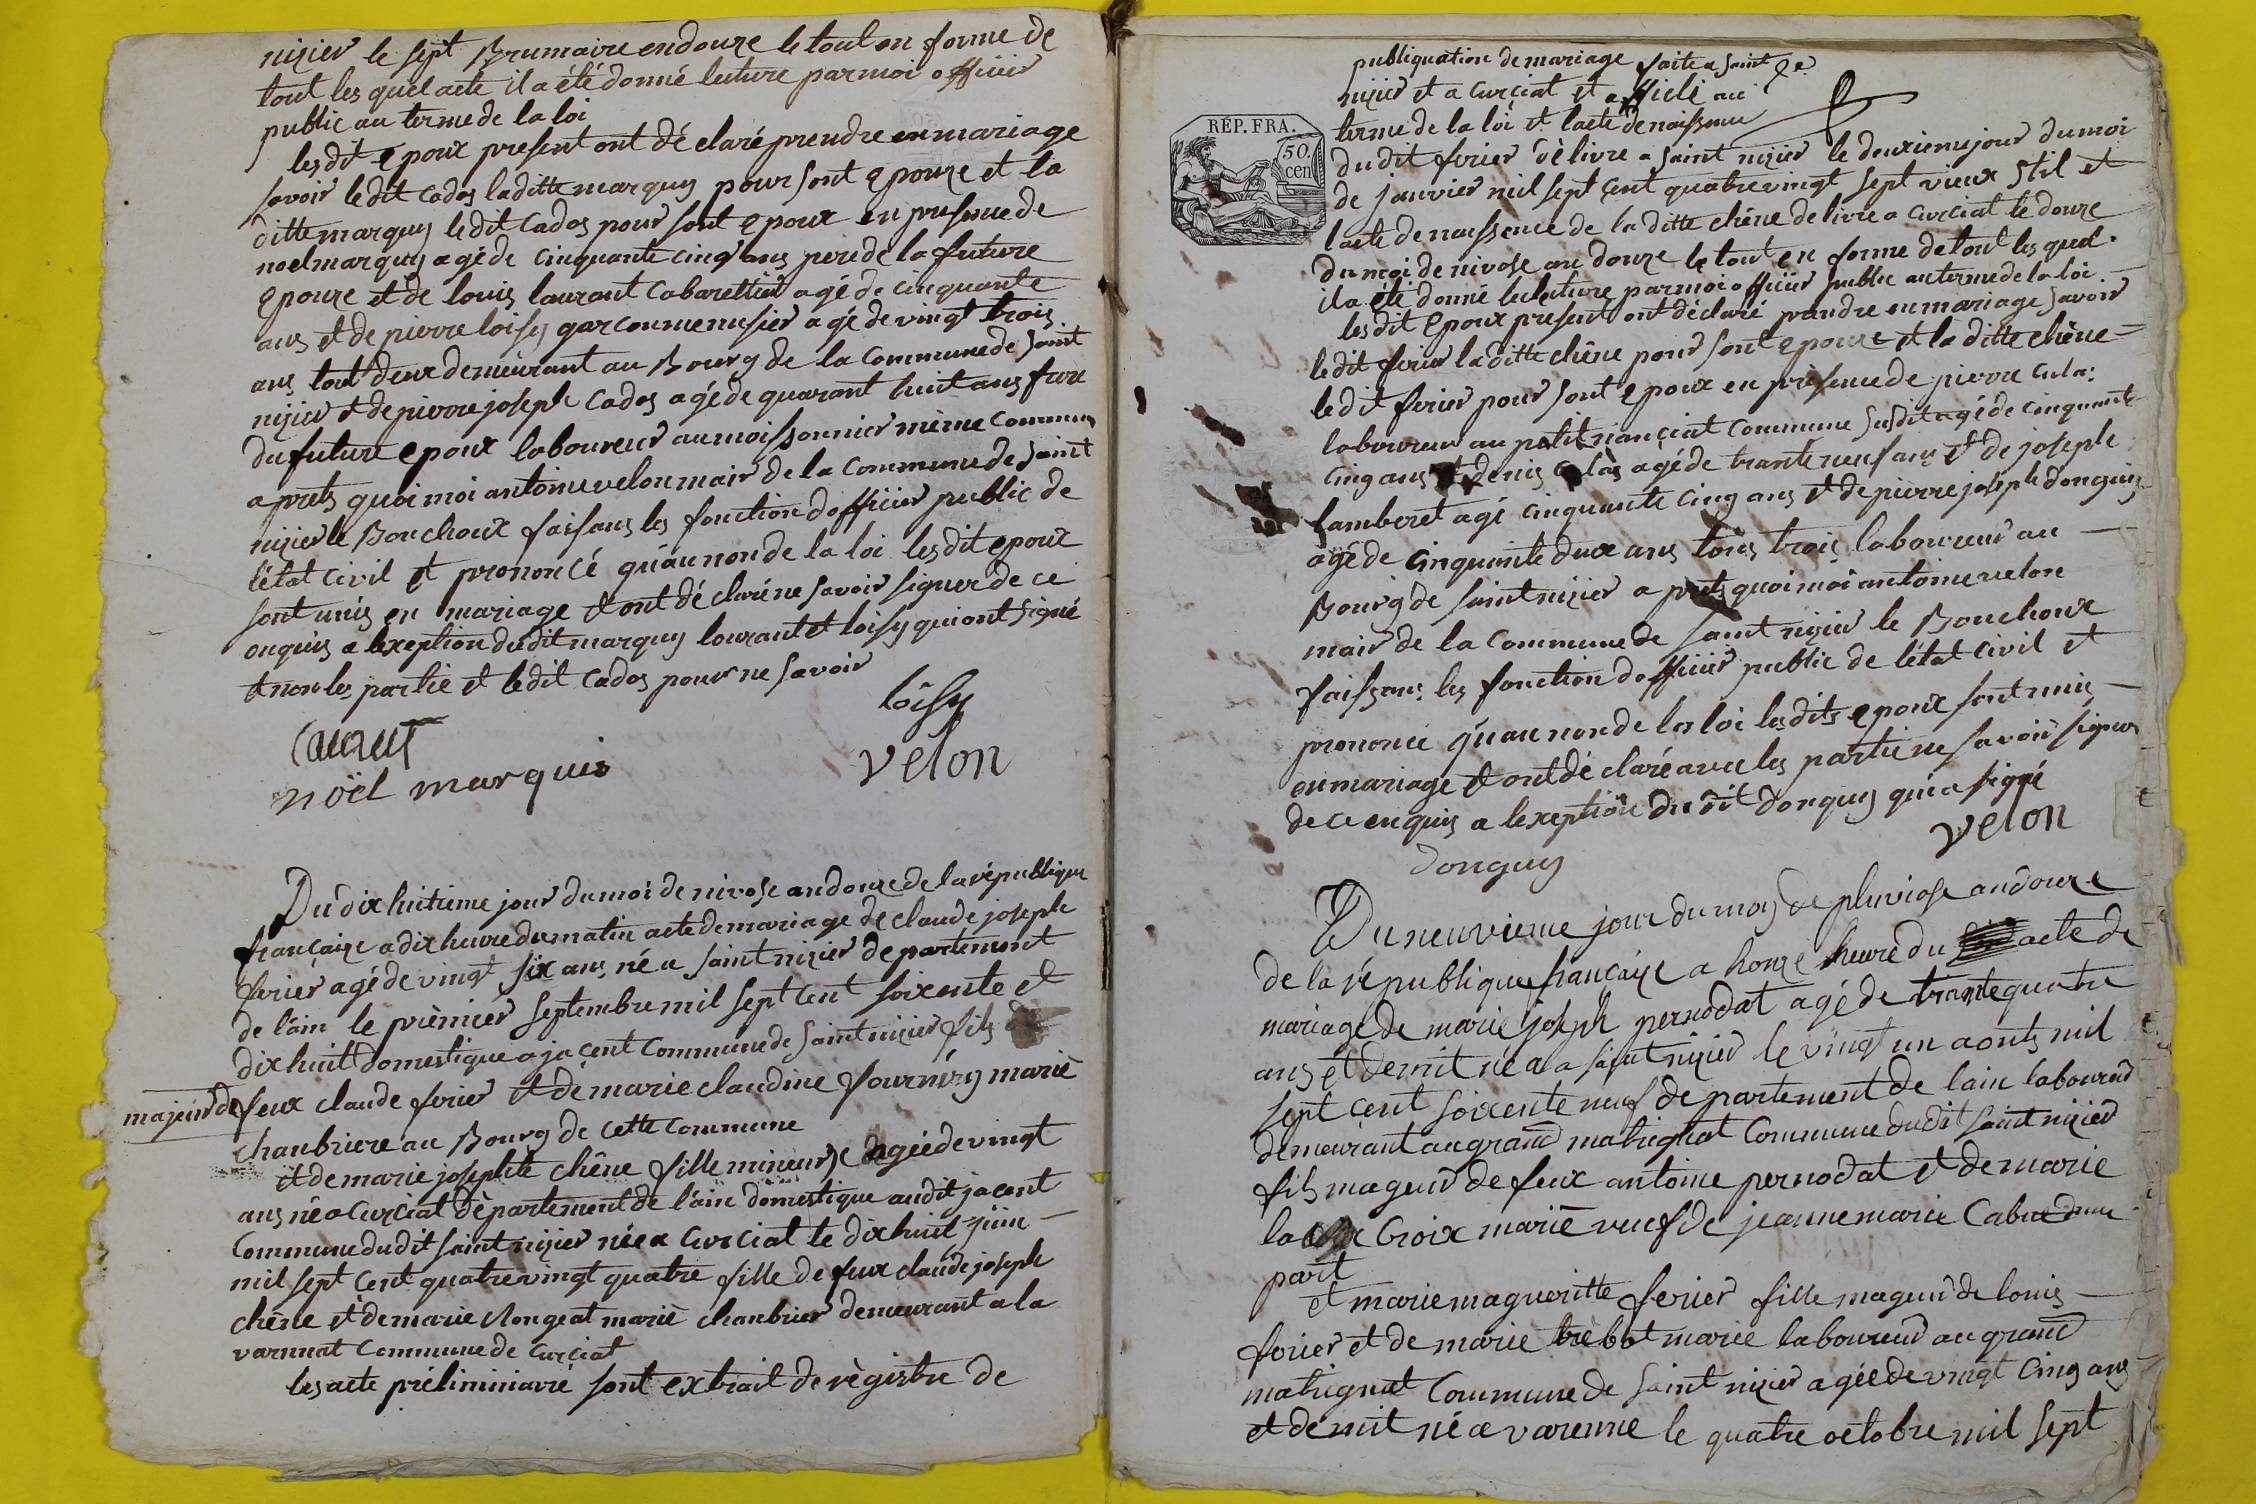 nizier le sept Brumaire en douze le tout en forme de
tout les quel acte il a été donné luture par moi officier
public au terme de la loi
les dit epoux present ont dé claré prendre en mariage
savoir le dit Cados la ditte marquis pour sont epouze et la
ditte marquis le dit Cados pour sont epoux en presence de
noel marquis agé de cinquante cinq ans pere de la future
epouze et de louis laurant Cabarettier agé de cinquante
ans et de pierre loisy garcon menusier agé de vingt trois
ans tout deux demeurant au Bourg de la Commune de saint
nizier et de pierre joseph Cados agé de quarant huit ans frere
du future epoux laboureur au moissonnier même Commune
aprets quoi moi antoine velon mair de la Commune de saint
nizier le Bouchoux faisans les fonction d officier public de
l'état Civil et prononcé qu'au non de la loi les dit epoux
sont unis en mariage et ont dé claré ne savoir signer de ce
enquis a lexeption du dit marquis lourant et loisy qui ont signé
et non les partie et le dit Cados pour ne savoir
loisy
laurant
noël marquis
velon
Du dix huitieme jour du moi de nivose an douze de la république
françaize a dix heure du matin acte de mariage de claude joseph
ferier agé de vingt six ans né a saint nizier departement
de l'ain le prémier septembre mil sept cent soixente et
dix huit domestique a jacent Commune de saint nizier fils
majeur de feux claude ferier et de marie claudine fournery marié
chanbriere au Bourg de cette Commune
et de marie josephte chêne fille mineur agée de vingt
ans né a Curciat département de l'ain domestique au dit jacent
Commune du dit saint nizier née a Curciat le dix huit juin
mil sept Cent quatre vingt quatre fille de feux claude joseph
chêne et de marie Rongeat marié chanbrier demeurant a la
varnnat Commune de Curciat
les acte préliminiaré sont extrait de règistre de
publiquation de mariage faite a saint
nizier et a Curciat et afficlé au
terme de la loi et lacte de naissance
RÉP. FRA.
50 cen
du dit ferier délivre a saint nizier le deuxieme jour du moi
de janvier mil sept cent quatre vingt sept vieux stil et
lacte de naissence de la ditte chêne delivre a Curciat le douze
du moi de nivose an douze le tout en forme de tout les quel
il a été donné luluture par moi officier public au terme de la loi
les dit epoux present ont déclaré prandre en mariage savoir
le dit ferier la ditte chêne pour sont epouze et la ditte chêne =
le dit ferier pour sont epoux en présence de pierre cula:
laboureur au petit Commune susdit agé de cinquante
cinq ans et denis agé de trante neuf ans et de joseph
lamberet agé cinquante cinq ans et de pierre joseph donguy
agé de cinquante deux ans tous trois laboureur au
Bourg de saint nizier aprets quoi moi antoine velon
mair de la Commune de saint nizier le Bouchoux
faissans les fonction d officier public de l'état Civil et
prononcé qu'au non de la loi les dits epoux sont unis
en mariage et ont dé claré avec les partie ne savoir signer
de ce enquis a lexeption du dit donguy qui a signé
velon
donguy
Du neuvieme jour du moy de pluviose an douze
de la république françaize a honze heure du acte de
mariage de marie joseph pernodat agé de trante quatre
ans et demit né a a saint nizier le vingt un aonts mil
sept cent soixente neuf departement de lain laboureur
demeurant au grand matrignat Commune du dit saint nizier
fils mageur de feux antoine pernodat et de marie
la Croix marié veuf de jeanne marie Cabu dune
part
et marie magueritte ferier fille mageur de louis
ferier et de marie trébot marié laboureur au grand
matrignat Commune de saint nizier agée de vingt Cinq ans
et demit né a varenne le quatre octobre mil sept